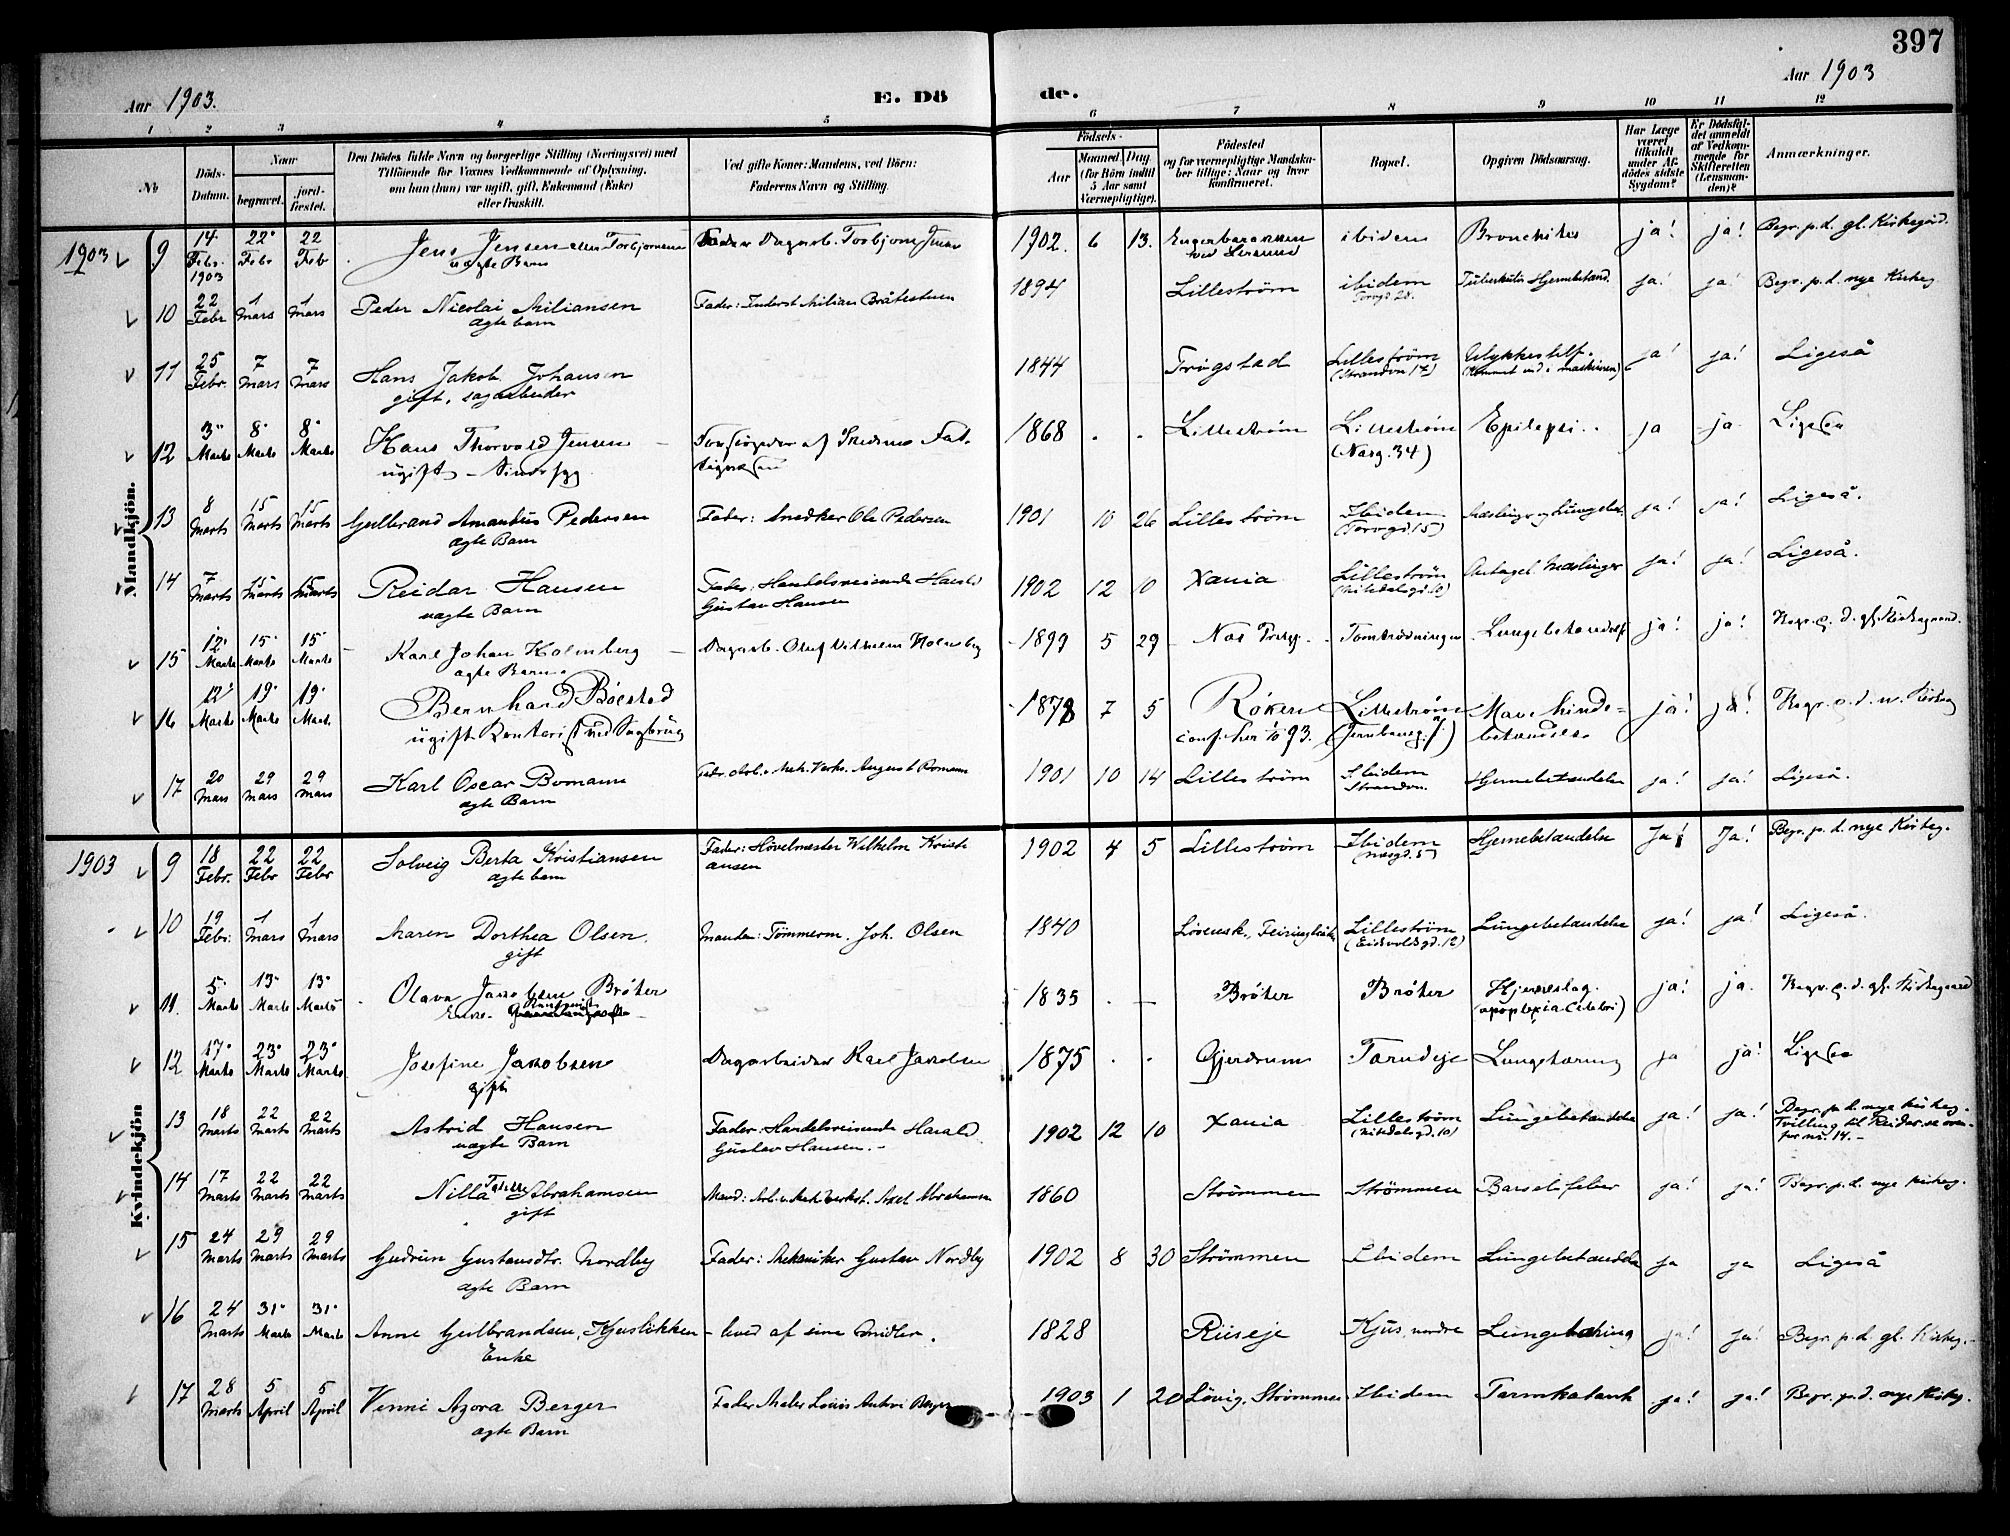 397
Aar 1903.
E. Dö
de.
Aar 1903
1 2 3 4 5 6 7 8 9 10 11 12
No
Döds-Datum.
Naar
begravet.
jord-fæstet.
Den Dödes fulde Navn og borgerlige Stilling (Næringsvei) med
Tilföiende for Voxnes Vedkommende af Oplysning,
om han (hun) var ugift, gift, Enkemand (Enke)
eller fraskilt.
Ved gifte Koner: Mandens, ved Börn:
Faderens Navn og Stilling.
Födsels-
Aar
Maaned. Dag.
(for Börn indtil
5 Aar samt
Værnepligtige).
Födested
og for værnepligtige Mandska-
ber tillige: Naar og hvor
konfirmeret.
Bopæl.
Opgiven Dödsaarsag.
Har Læge
været
tilkaldt
under Af-
dödes sidste
Sygdom?
Er Dödsfal-
det anmeldt
af Vedkom-
mende for
Skifteretten
(Lensman-
den)?
Anmærkninger.
Mandkjön.
1903 9 14 Febr. 1903 22 Febr 22 Feb Jens Jensen eller Torbjornsen Fader Dagarb. Torbjorn Jensen 1902. 6 13. ibidem Bronchitis ja! ja! Begr. p. d. gl. Kirkegård.
uægte Barn
10 22 Febr 1 Mars 1 Mars Peder Nicolai Miliansen Fader: Inderst Milian Bråtestuen 1894 Lilleström ibidem Tuberkuløs Hjernebetænd. ja! ja! Begr. p. d. nye Kirkeg.
ægte barn Torvgd. 28.
11 25 Febr. 7 Mars 7 Mars Hans Jakob Johansen 1844 Trögstad Lilleström Ulykkestilf. ja! ja! Ligeså
gift, sagarbeider (Strandvn 17) (Kommet ind i maskinen)
12 3 Marts 8 Marts 8 Marts Hans Thorvald Jensen Forsörgedes af Skedsmo Fat- 1868 Lilleström Lilleström Epilepsi ja ja Ligesaa
ugift - Sindssyg tigvæsen (Næsg. 34)
13 8 Marts 15 Marts 15 Marts Gulbrand Amandus Pedersen Fader: Snedker Ole Pedersen 1901 10 26 Lilleström Ibidem Mæslinger og Lungebet. ja! ja! Ligeså.
ægte Barn (Torvgd. 15)
14 7 Marts 15 Marts 15 Marts Reidar Hansen Fader: Handelsreisende Harald 1902 12 10 Xania Lilleström Antagel. Mæslinger ja! ja! Ligeså.
uægte Barn Gustav Hansen (Nitedalsgd. 10)
15 12 Marts 15 Marts 15 Marts Karl Johan Holmberg Dagarb. Oluf Vilhelm Holmberg 1899 5 29 Lungebetændelse ja! ja! Begr. p. d. gl. Kirkegaard.
ægte Barn
16 12 Marts 19 Marts 19 Marts Bernhard Böestad 1878 7 5 Röken Lilleström Mavehinde- ja! ja! Begr. p. d. n. Kirkeg
ugift Kontorist ved Sagbrug conf. her 93. (Jernbaneg. 7) betændelse
17 20 Mars 29 Mars 29 Mars Karl Oscar Bomann Fadr. Arb. v. Mek. Verks. August Bomann 1901 10 14 Lilleström Ibidem Hjernebetændelse ja! ja! Ligeså.
ægte Barn Strandvn.
Kvindekjön
1903 9 18 Febr. 22 Febr 22 Febr Solveig Berta Kristiansen Fader: Hövelmester Wilhelm Kristi- 1902 4 5 Lilleström Ibidem Hjernebetændelse Ja! Ja! Begr. p. d. nye Kirkeg.
ægte barn ansen (Næsgd. 5)
10 19 Febr. 1 Mars 1 Mars Maren Dorthea Olsen Manden: Tömmerm. Joh. Olsen 1840 Lörensk., Lilleström Lungebetændelse ja! ja! Ligeså.
gift (Eidsvoldsgd. 12)
11. 5 Marts 13 Marts 13 Marts Olava Jacobsen Bråter 1835 Bråter Bråter Hjerneslag ja! ja. Begr. p. d. gl. Kirkegaard
Enke. (apoplexia cerebri)
12 17 Marts 23 Marts 23 Marts Josefine Jacobsen Dagarbeider Karl Jacobsen 1875 Gjerdrum Tærudeje Lungetæring ja ja! Ligesaa
gift
13 18 Marts 22 Marts 22 Marts Astrid Hansen Fader: Handelsreisende Harald 1902 12 10 Xania Lilleström Lungebetændelse ja! ja! Begr. p. d. nye Kirkeg.
uægte Barn Gustav Hansen. (Nitedalsgd. 10) Tvilling til Reidar se oven-
for nr. 14. -
14 17 Marts 22 Marts 22 Marts Nilla Abrahamsen Mand: Arb. v. Mek. Verkst. Axel Abrahamsen 1860 Strömmen Strömmen Barselfeber ja! ja! Begr. p. d. nye Kirkeg.
gift
15 24 Marts 29 Marts 29 Marts Gudrun Gustavsdtr. Nordby Fader: Mekaniker Gustav Nordby 1902 8 30 Strömmen Ibidem Lungebetændelse ja ja Ligeså
ægte Barn
16 24 Marts 31 Marts 31 Marts Anne Gulbrandsen, Kjuslikken - leved af sine Midler. 1828 Riiseje Kjus, nordre Lungetæring ja! ja! Begr. p. d. gl. Kirkeg.
Enke
17 28 Marts 5 April 5 April Venni Azora Berger Fader Maler Louis Berger 1903 1 20 Lövig, Strömmen Ibidem Tarmkatarrh ja! ja! Begr. p. d. nye Kirkeg.
ægte Barn